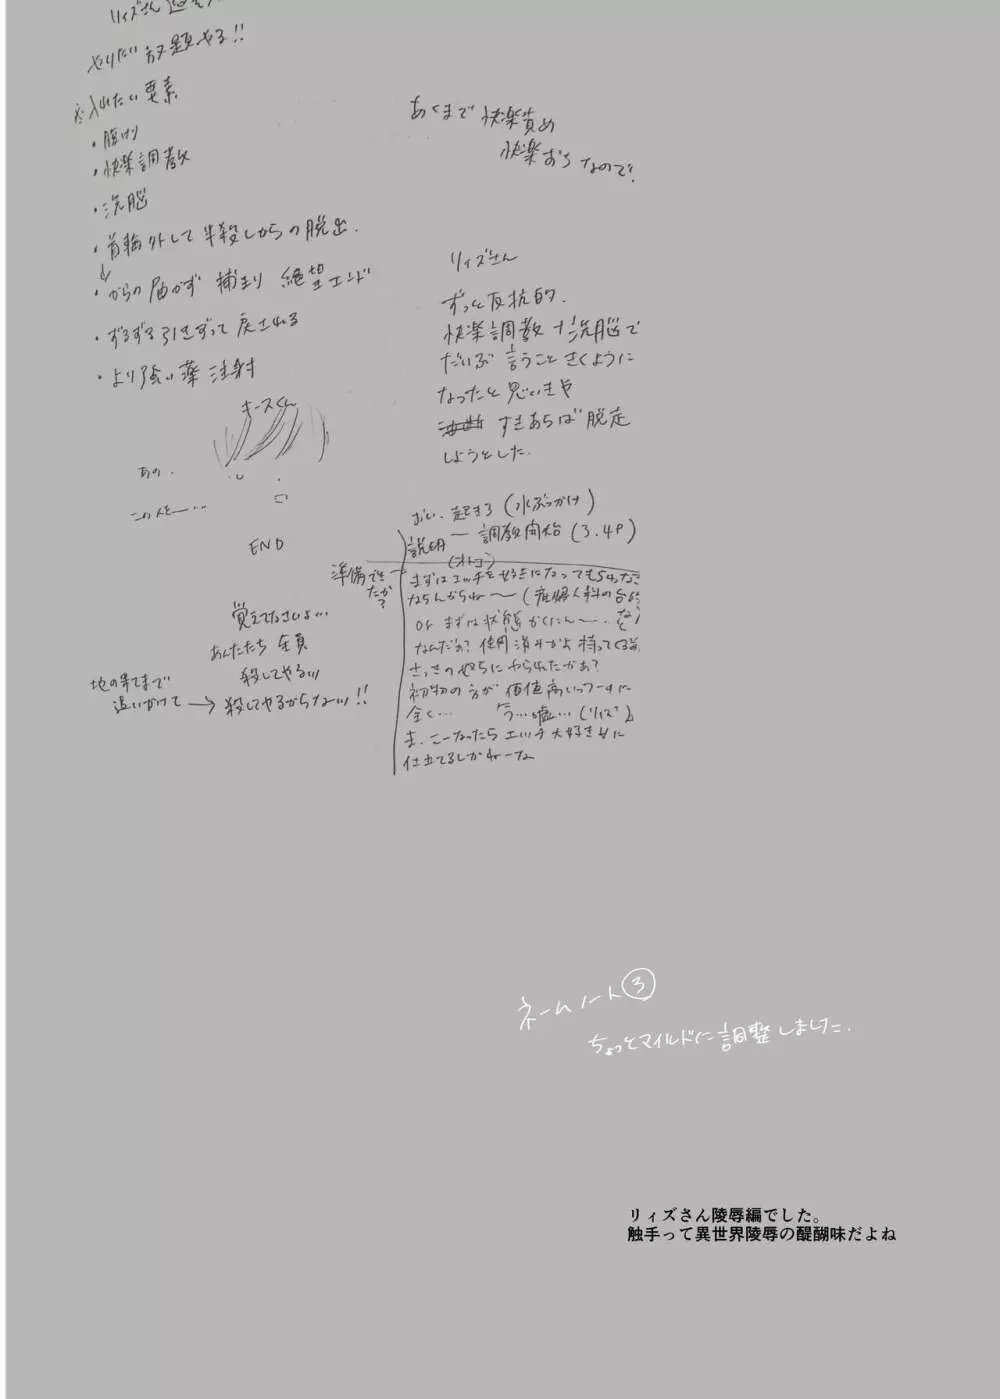 リィズさん
やりたい放題やる!!
※入れたい要素
・腹けり
・快楽調教
・洗脳
・首輪外して半殺しからの脱出.
・からの届かず 捕まり 絶望エンド
・ずるずる引きずって戻される
・より強い薬 注射
キースくん
あの.
この人…
END
覚えてなさいよ…
あんたたち 全員
殺してやる
地の果てまで
追いかけて→殺してやるからない!!
あくまで 快楽責め
快楽おち なので!
リィズさん
ずっと反抗的.
快楽調教+洗脳で
だいぶ言うこときくように
なったと思いきや
油断 すきあらば脱走
しようとした.
おい.起きろ(水ぶっかけ)
説明ー調教開始(3.4P)
(オトコ)
準備できたか?
まずはエッチを好きになってもらわな
ならんからねー(産婦人科の台
or まずは状態かくにんー.
なんだぁ?使用済みかよ 持ってくる前
さっきの奴らにやられたかぁ?
初物の方が価値高いっつーのに
全く… う…嘘…(リィズ)
ま.こーなったらエッチ大好き女に
仕立てるしかねーな
ネームノート③
ちょっとマイルドに調整しました.
リィズさん陵辱編でした。
触手って異世界陵辱の醍醐味だよね